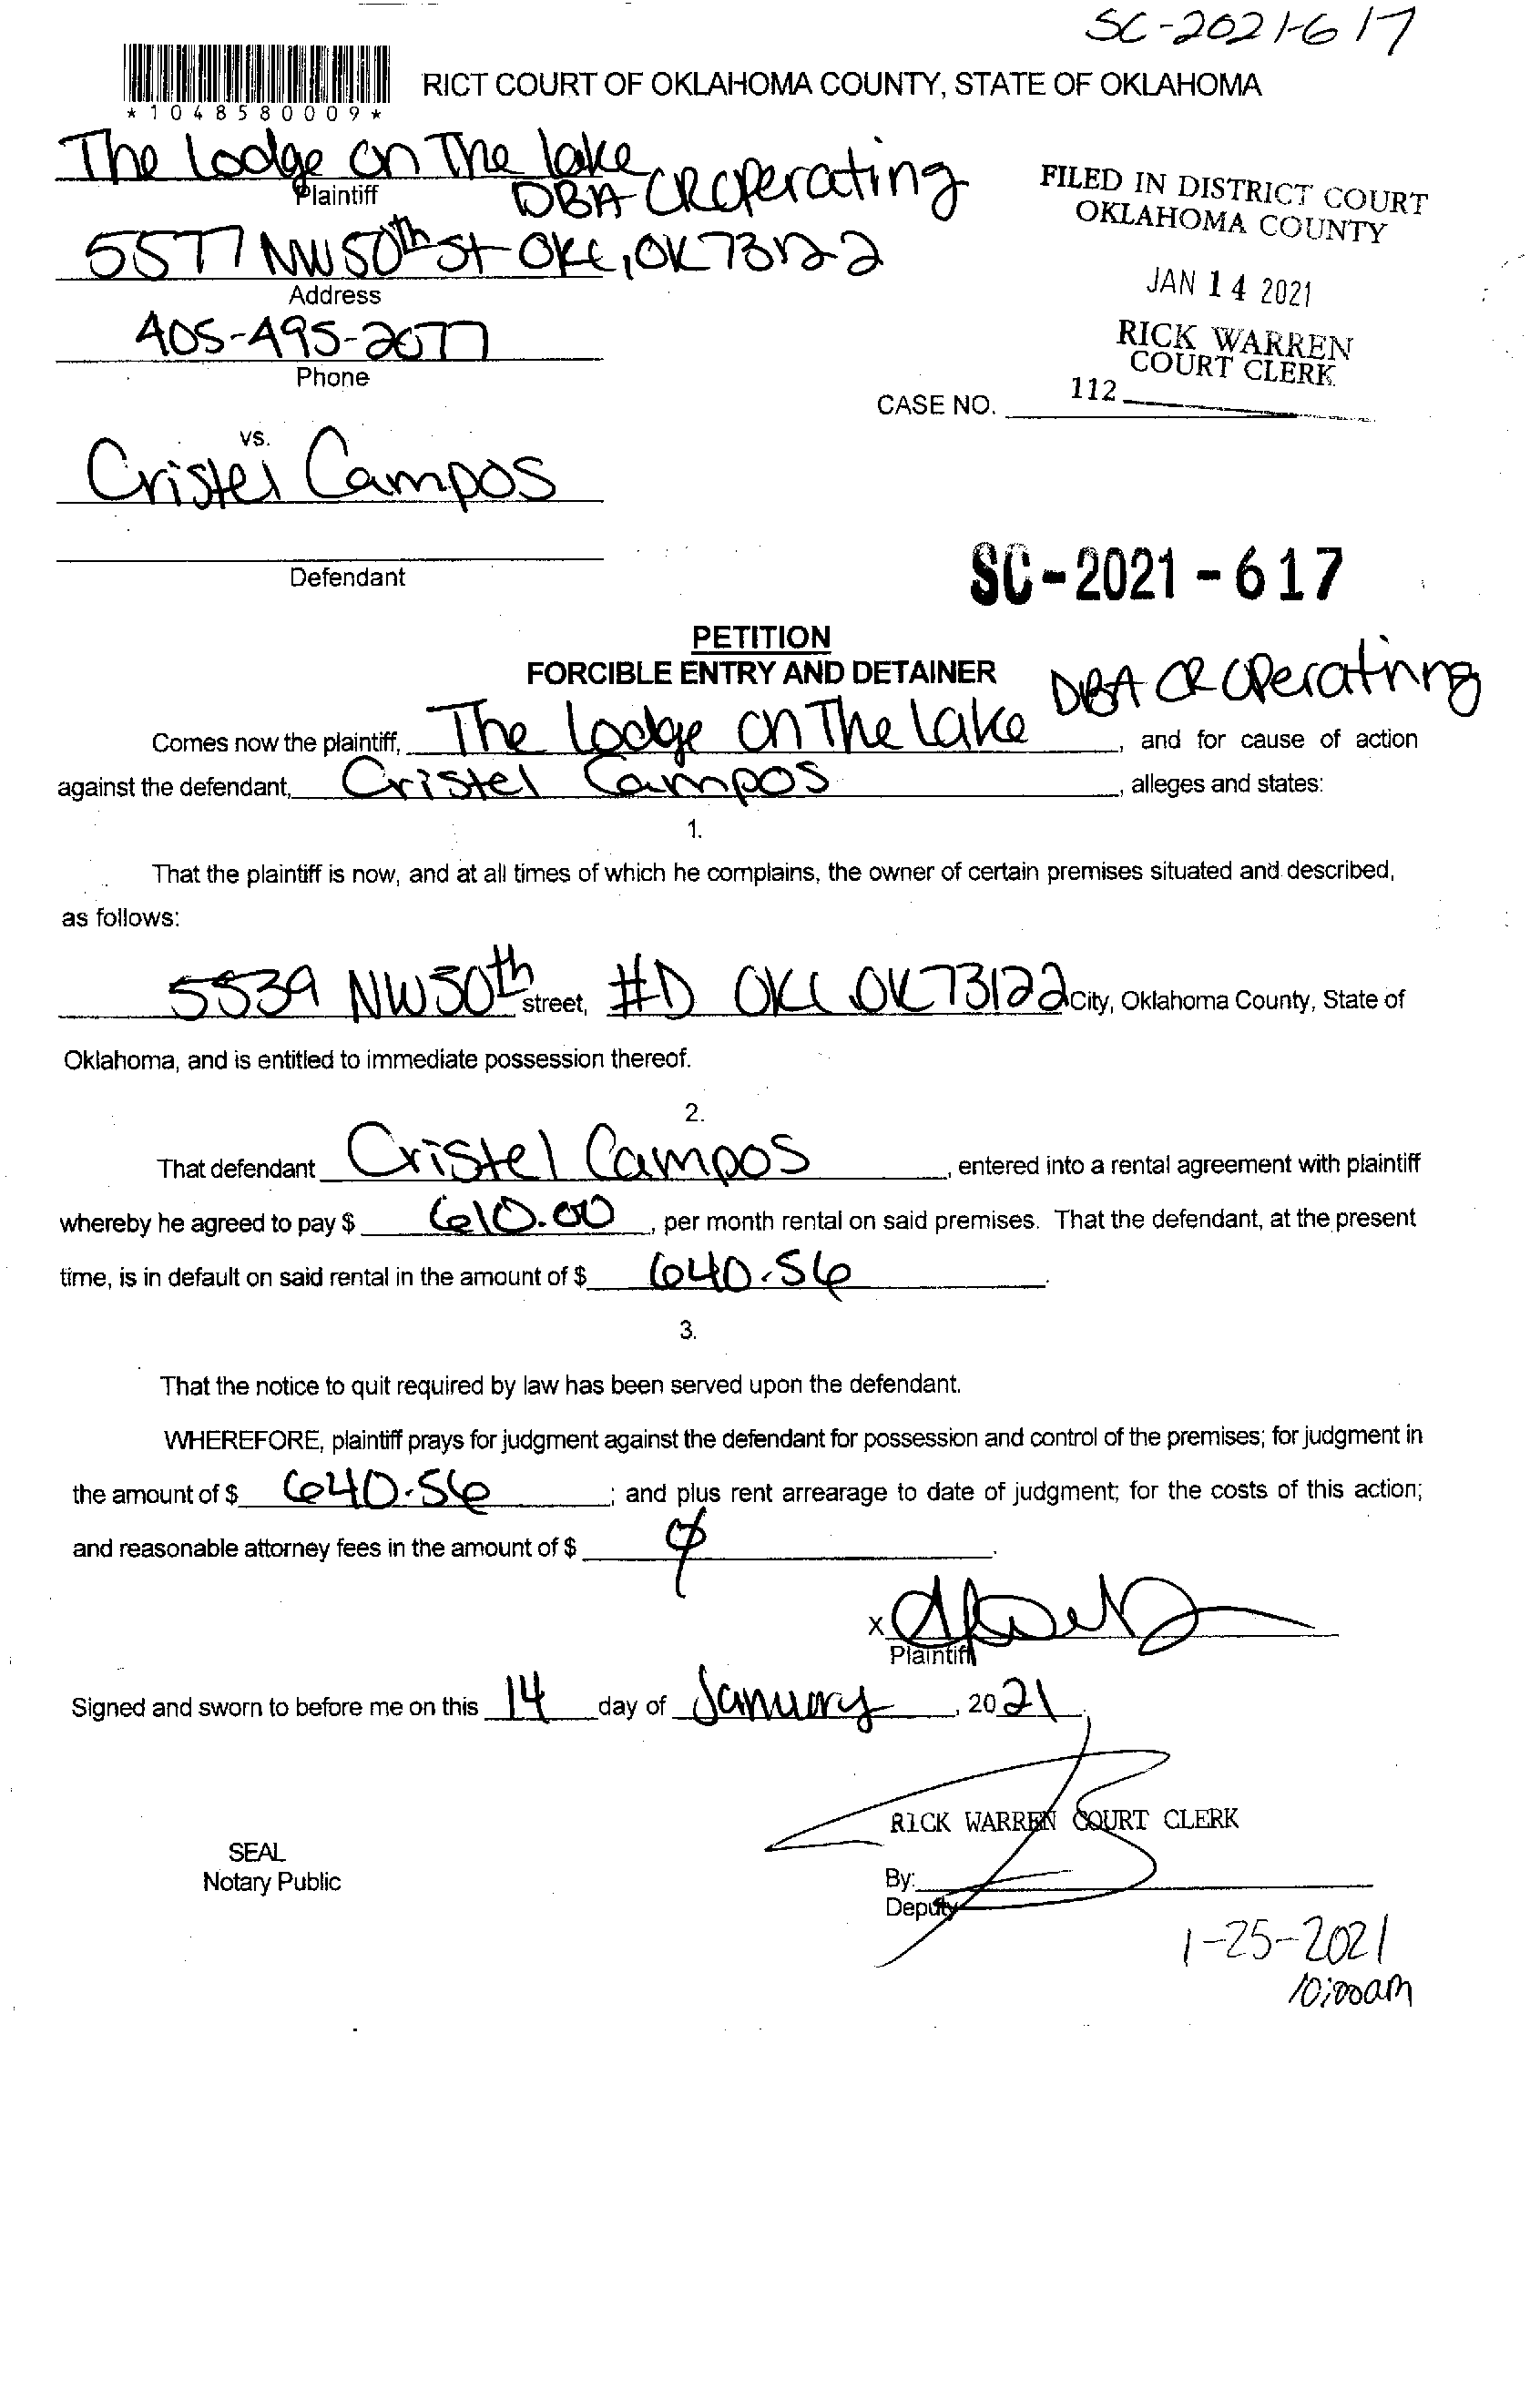 SC-2021-617
*1048580009*
RICT COURT OF OKLAHOMA COUNTY, STATE OF OKLAHOMA
The Lodge on The lake
Plaintiff
DBA CR Operating
FILED IN DISTRICT COURT
OKLAHOMA COUNTY
5577 NW 50th St OKC, OK 73122
Address
JAN 14 2021
405-495-2077
Phone
RICK WARREN
COURT CLERK
CASE NO.
112
vs.
Cristel Campos
Defendant
SC-2021-617
PETITION
FORCIBLE ENTRY AND DETAINER
DBA CR Operating
Comes now the plaintiff, The Lodge on The Lake, and for cause of action
against the defendant, Cristel Campos, alleges and states:
1.
That the plaintiff is now, and at all times of which he complains, the owner of certain premises situated and described,
as follows:
5539 NW 50th street, #D OKC OK 73122 City, Oklahoma County, State of
Oklahoma, and is entitled to immediate possession thereof.
2.
That defendant Cristel Campos, entered into a rental agreement with plaintiff
whereby he agreed to pay $ 610.00, per month rental on said premises. That the defendant, at the present
time, is in default on said rental in the amount of $ 640.56.
3.
That the notice to quit required by law has been served upon the defendant.
WHEREFORE, plaintiff prays for judgment against the defendant for possession and control of the premises; for judgment in
the amount of $ 640.56; and plus rent arrearage to date of judgment; for the costs of this action;
and reasonable attorney fees in the amount of $ .
X
Plaintiff
Signed and sworn to before me on this 14 day of January, 2021.
RICK WARREN COURT CLERK
SEAL
Notary Public
By:
Deputy
1-25-2021
10:00am